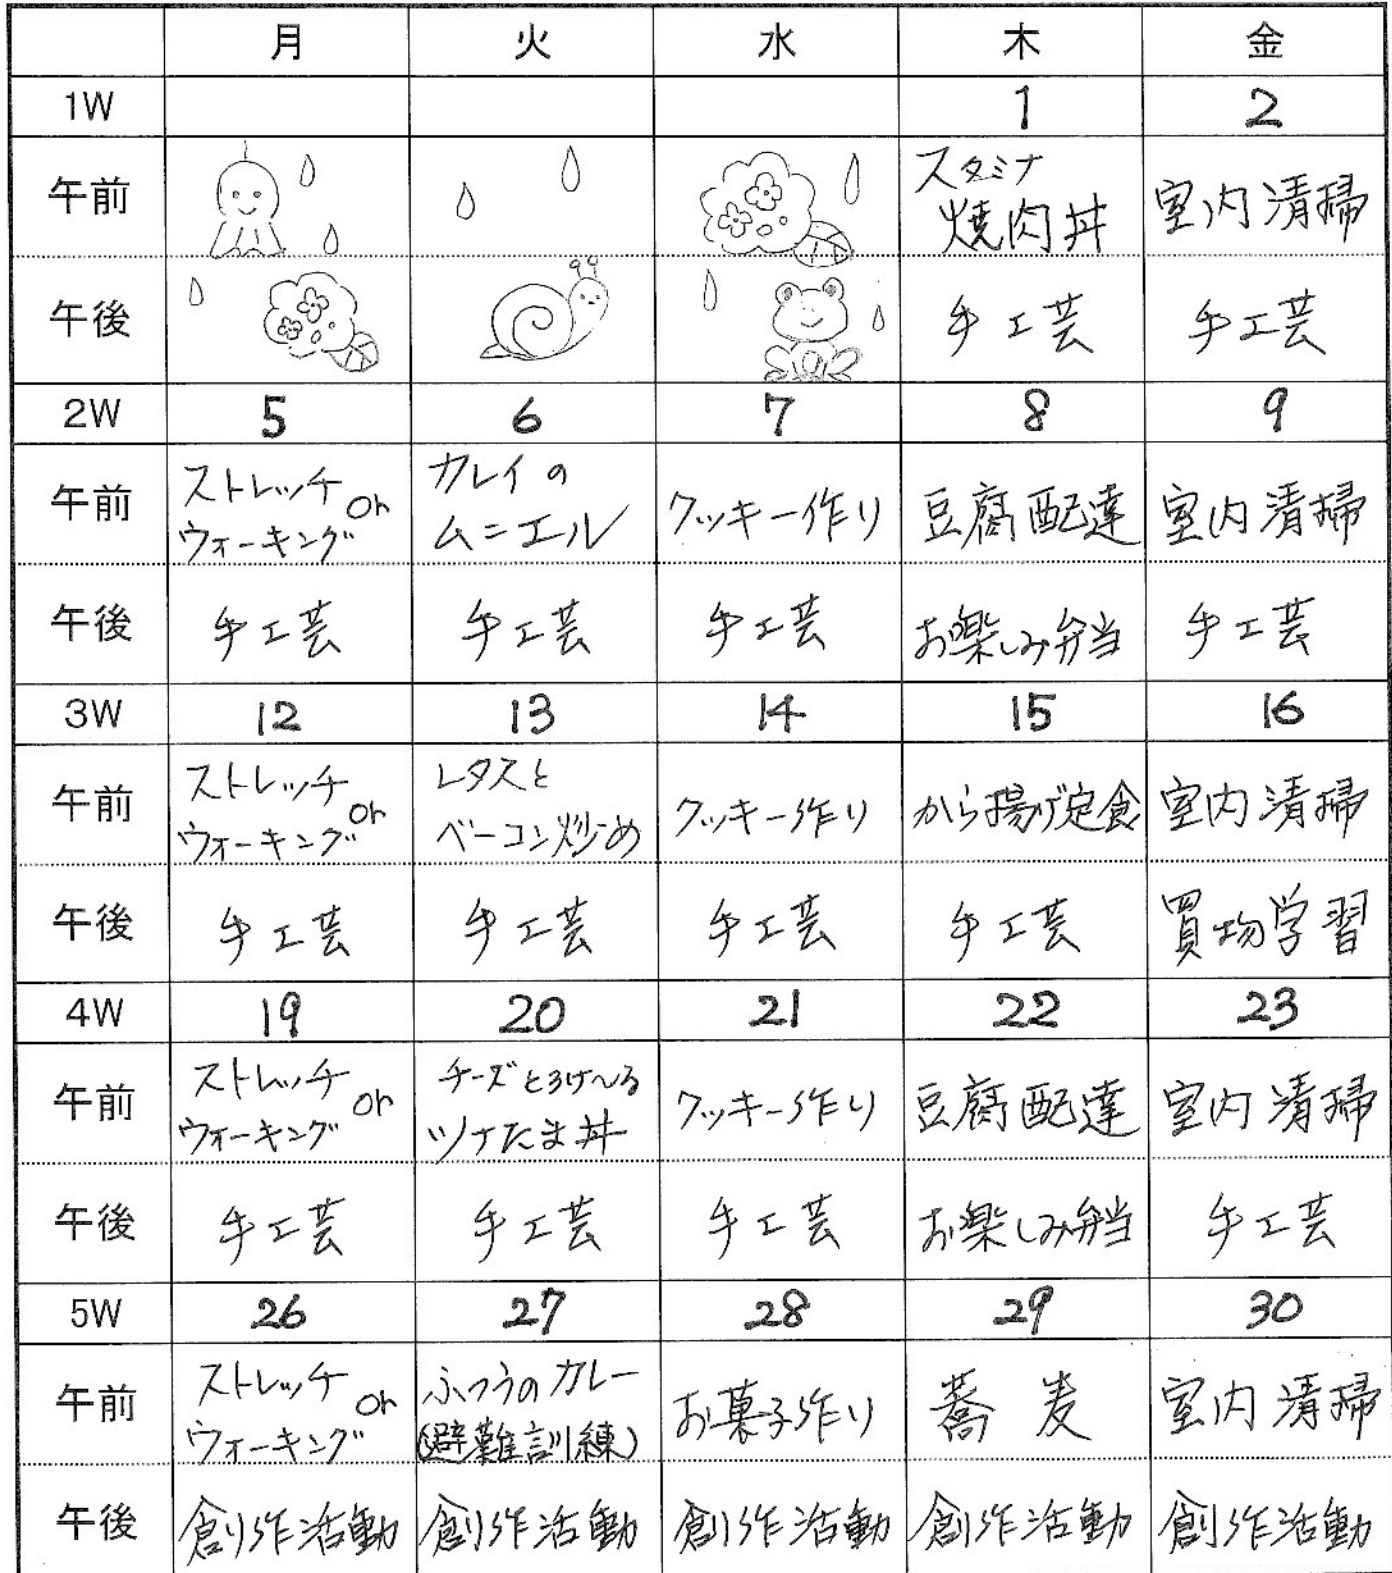 月 火 水 木 金
1W 1 2
午前 スタミナ
焼肉丼 室内清掃
午後 手工芸 手工芸
2W 5 6 7 8 9
午前 ストレッチ or
ウォーキング カレイの
ムニエル クッキー作り 豆腐配達 室内清掃
午後 手工芸 手工芸 手工芸 お楽しみ弁当 手工芸
3W 12 13 14 15 16
午前 ストレッチ or
ウォーキング レタスと
ベーコン炒め クッキー作り から揚げ定食 室内清掃
午後 手工芸 手工芸 手工芸 手工芸 買物学習
4W 19 20 21 22 23
午前 ストレッチ or
ウォーキング チーズとろけ〜る
ツナたま丼 クッキー作り 豆腐配達 室内清掃
午後 手工芸 手工芸 手工芸 お楽しみ弁当 手工芸
5W 26 27 28 29 30
午前 ストレッチ or
ウォーキング ふつうのカレー
(避難訓練) お菓子作り 蕎麦 室内清掃
午後 創作活動 創作活動 創作活動 創作活動 創作活動